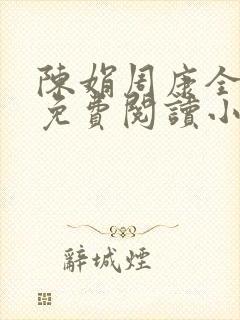 陳娟周康全
免費閱讀小
辭城煙